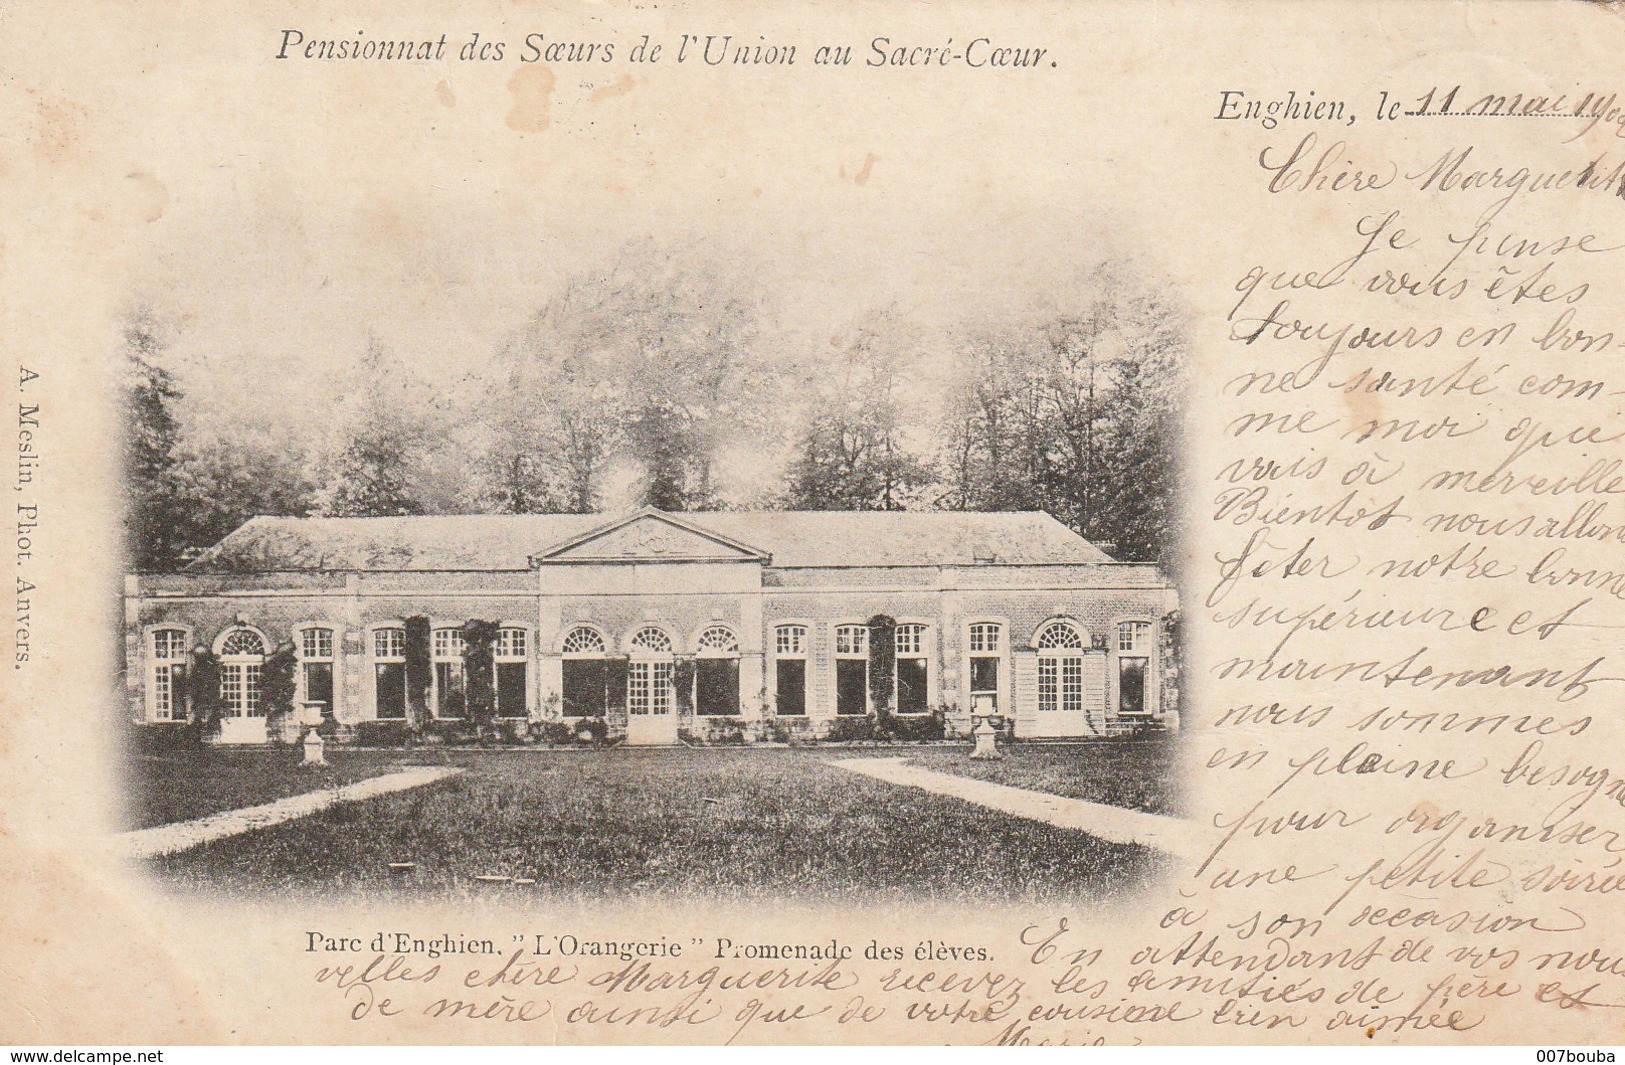 Pensionnat des Sœurs de l'Union au Sacré-Cœur.
Enghien, le 11 mai
Chère Marguerite
Je pense
que vous êtes
toujours en bon-
ne santé com-
me moi qui
vais à merveille
Bientôt nous allons
fêter notre bonne
supérieure et
maintenant
nous sommes
en pleine besogne
pour organiser
une petite soirée
à son occasion
En attendant de vos nou-
velles chère Marguerite recevez les amitiés de père et
de mère ainsi que de votre cousine bien aimée
Marie
Parc d'Enghien. "L'Orangerie" Promenade des élèves.
A. Meslin, Phot. Anvers.
delcampe.net
007bouba